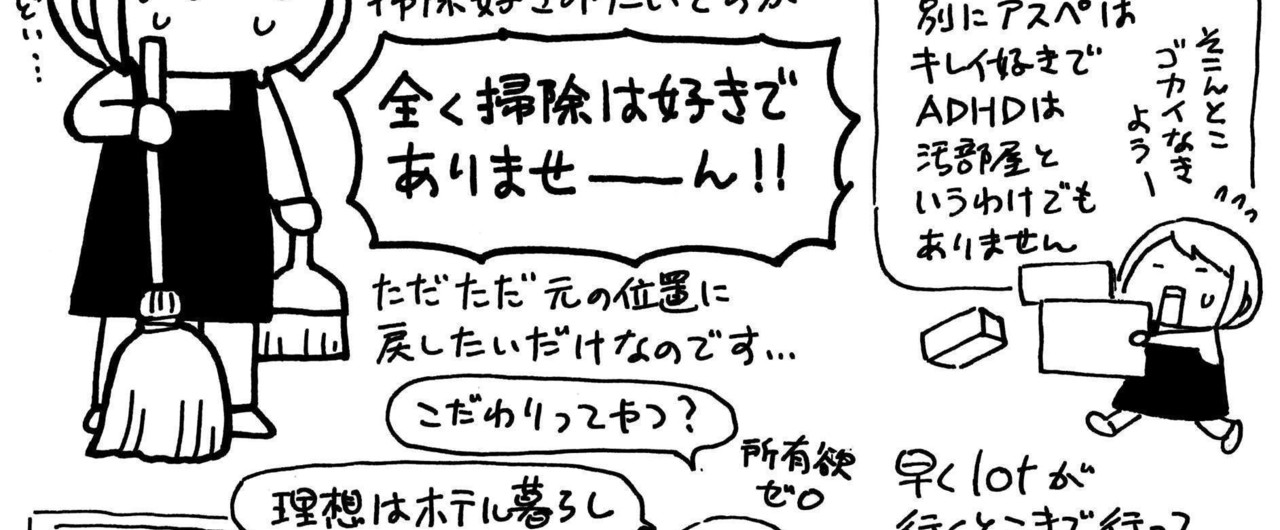 全く掃除は好きで
ありませーーん!!
ただただ元の位置に
戻したいだけなのです…
こだわりってやつ？
理想はホテル暮らし
所有欲
ゼロ
別にアスペは
キレイ好きで
ADHDは
汚部屋と
いうわけでも
ありません
そこんとこ
ゴカイなき
ようー
早くIotが